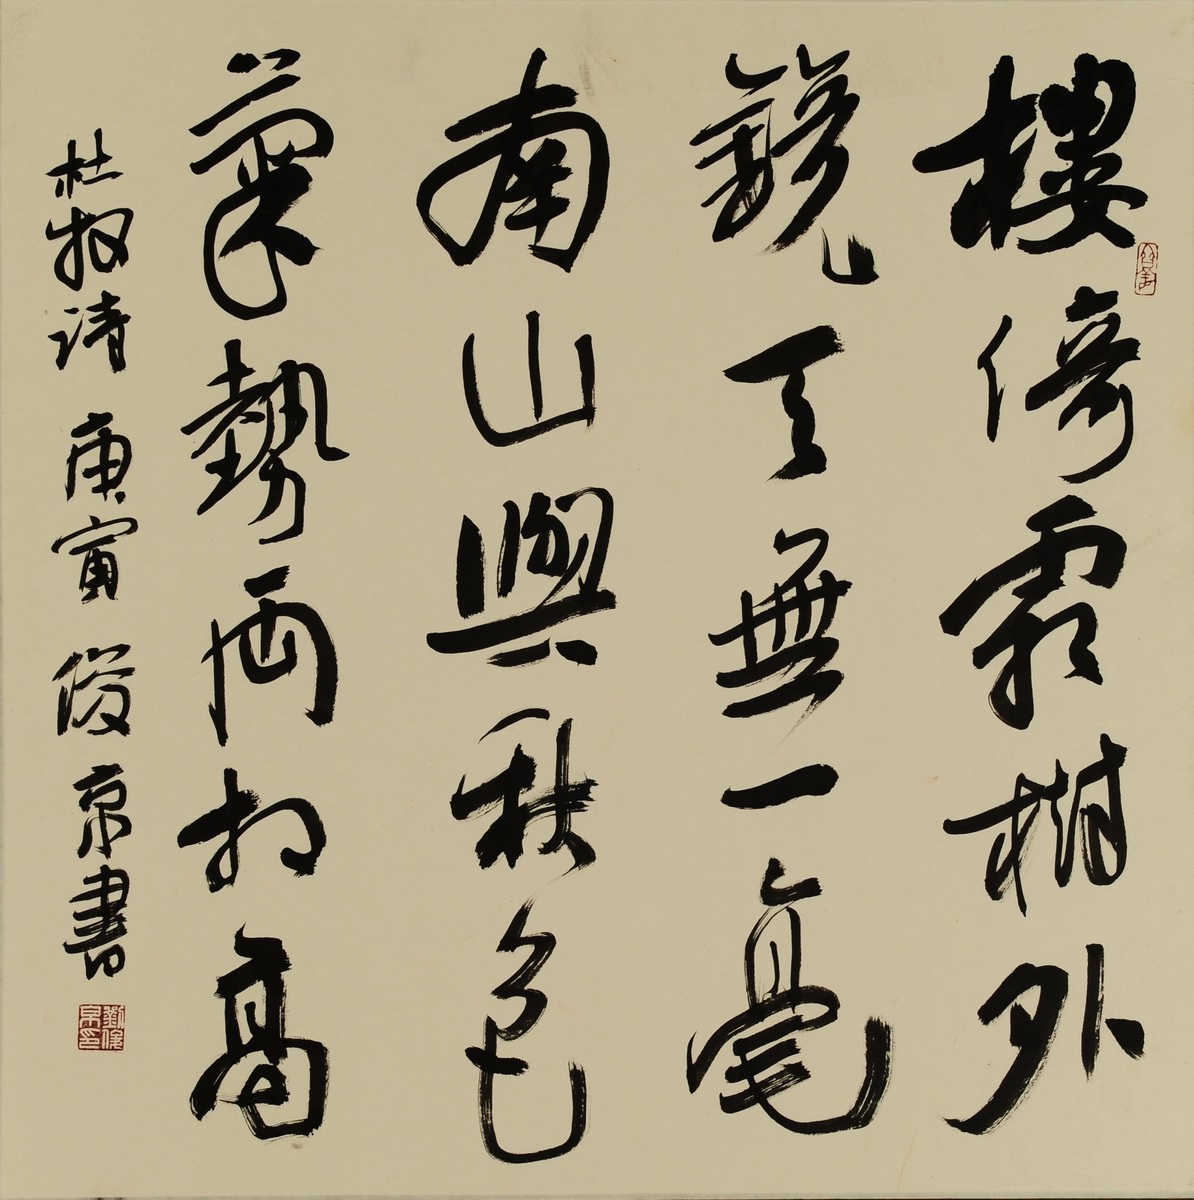 樓倚霜樹外
鏡天無一毫
南山與秋色
氣勢兩相高
杜牧诗 庚寅 俊京書
劉俊京印